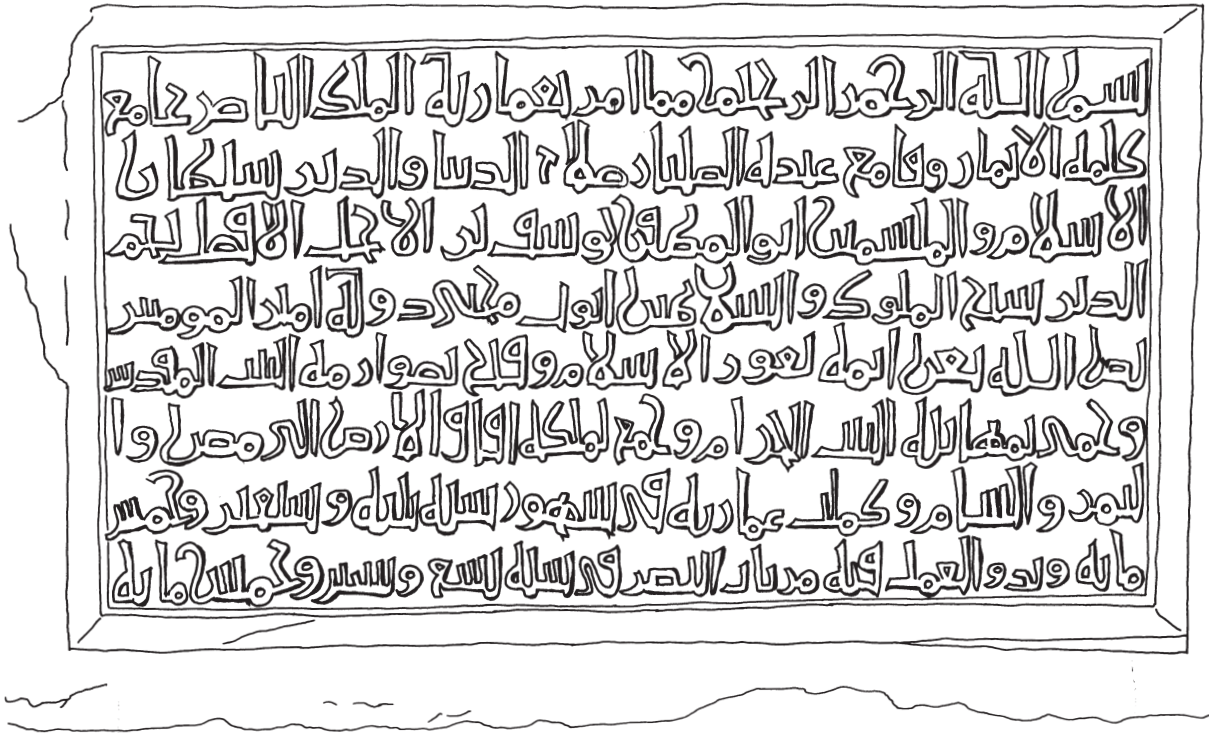 بسم الله الرحمن الرحيم مما امر بعمارته الملك الناصر جامع
كلمة الايمان وقامع عبدة الصلبان صلاح الدنيا والدين سلطان
الاسلام والمسلمين ابو المظفر يوسف بن الاجل الافضل نجم
الدين شيخ الملوك والسلاطين ايوب محيي دولة امير المومنين
الله ثغور الاسلام وفتح بصوارمه البيت المقدس
وحمى بمهابته البيت الحرام وجمع لملكه الارض مصر وا
ليمن والشام وكملت عمارته في شهور سنة وسبعين وخمس
مائة وبدو العمل فيه من باب النصر في سنة تسع وستين وخمس مائة